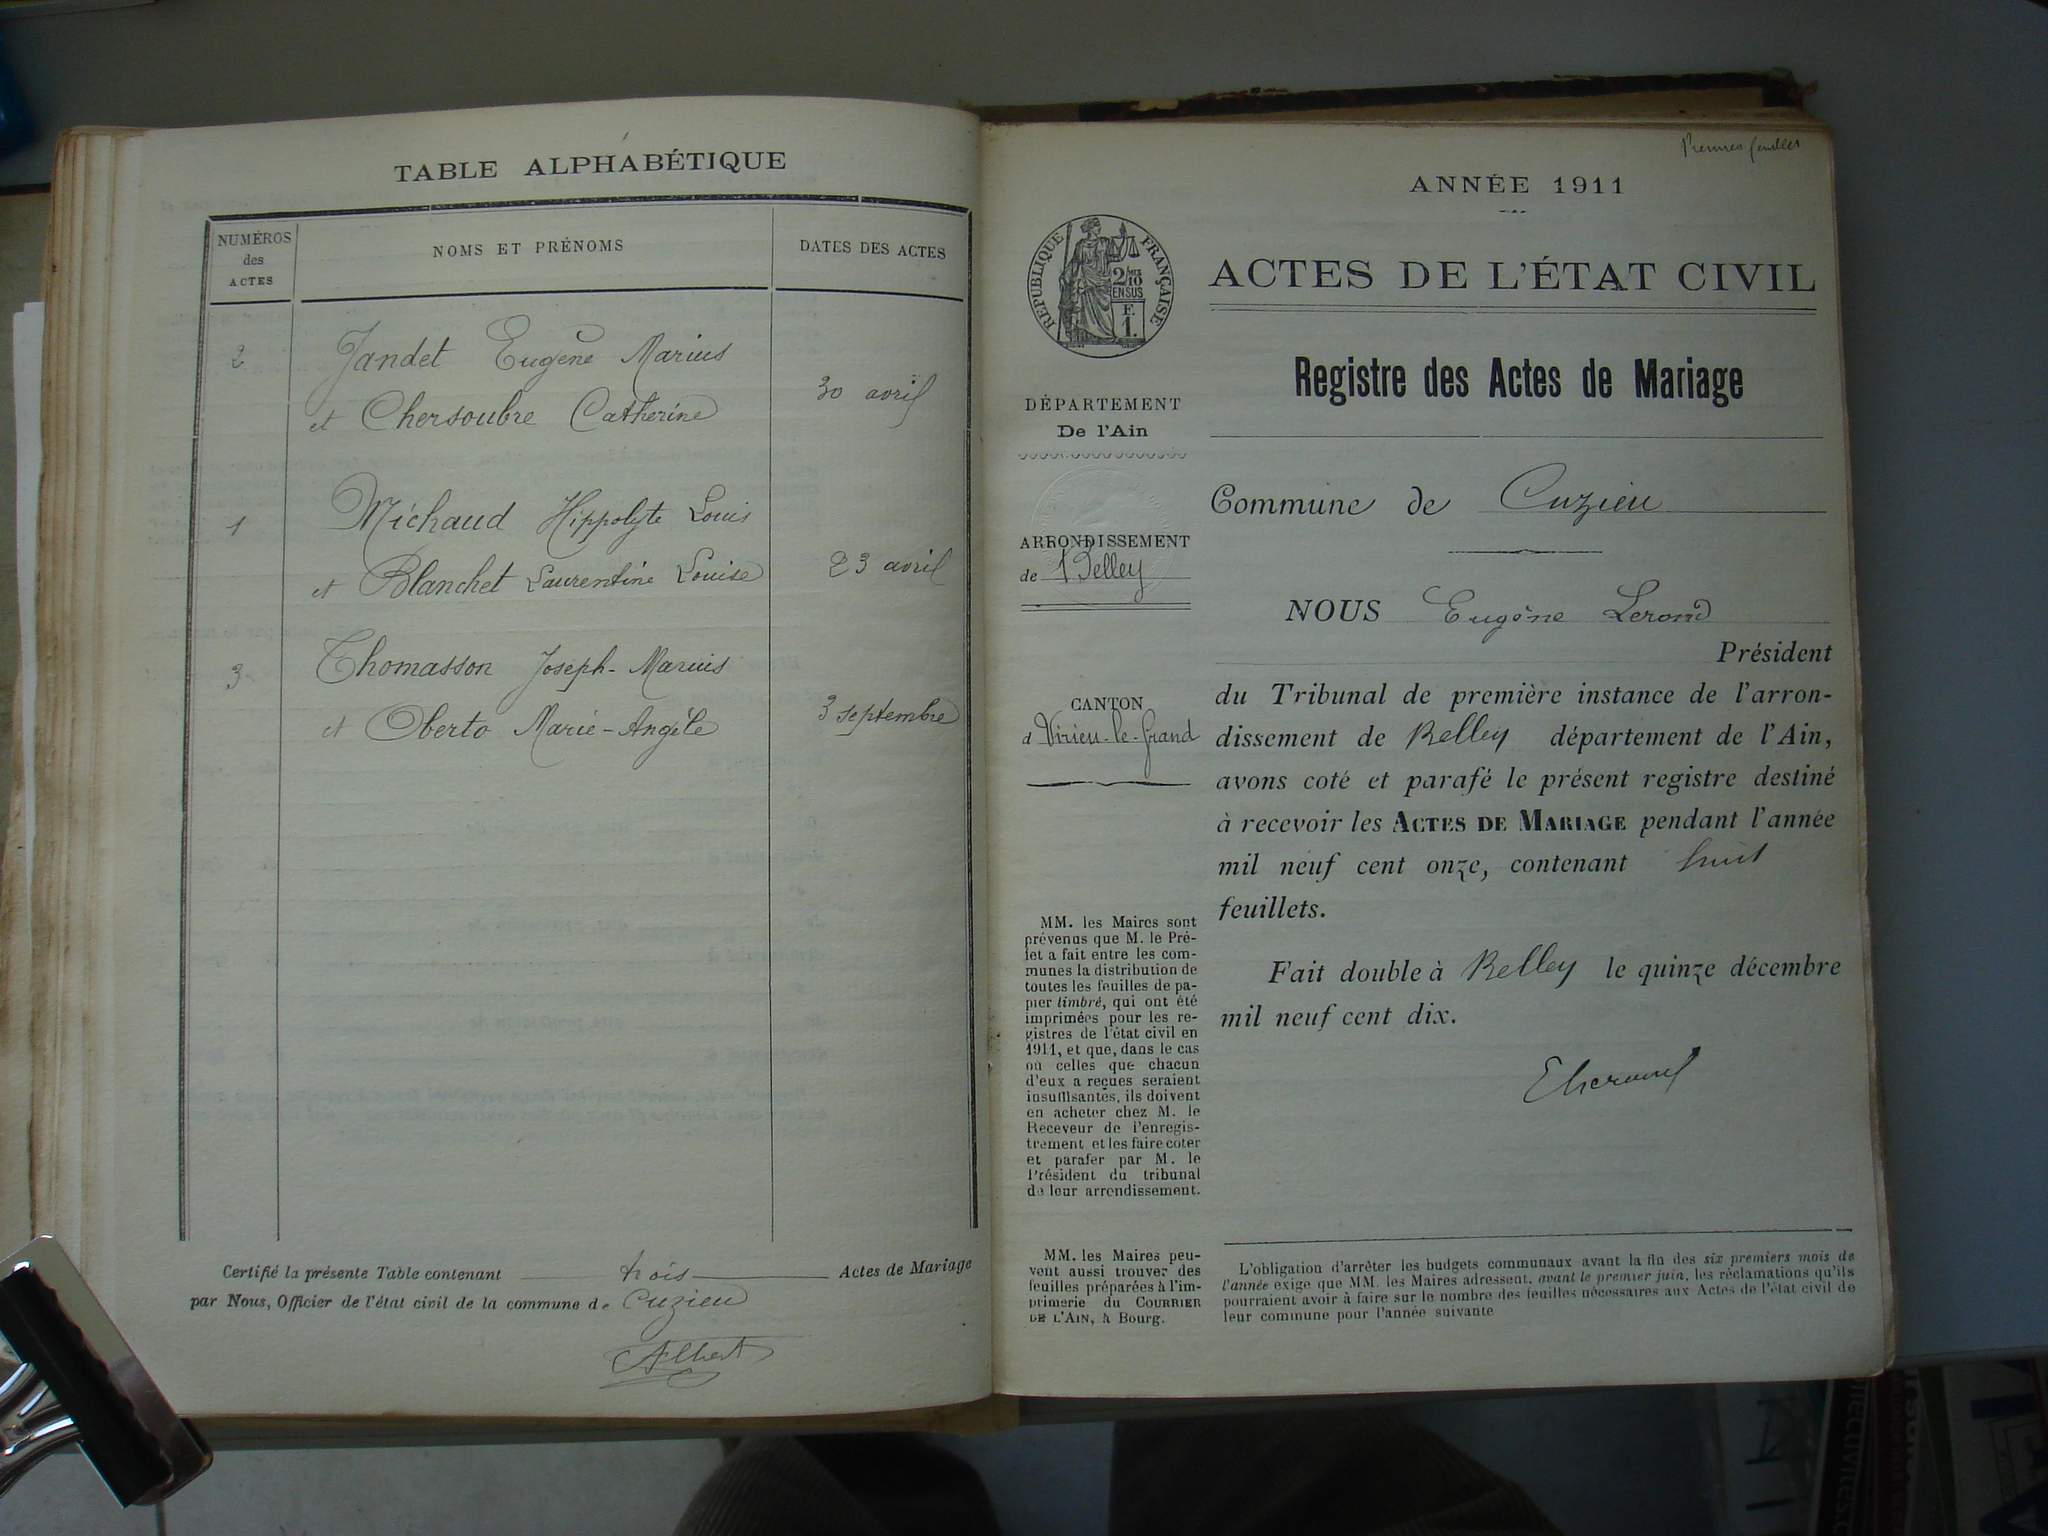 TABLE ALPHABÉTIQUE
NUMÉROS des ACTES
NOMS ET PRÉNOMS
DATES DES ACTES
2 Jandet Eugène Marius
et Chersoubre Catherine 30 avril
1 Michaud Hippolyte Louis
et Blanchet Laurentine Louise 23 avril
3 Thomasson Joseph-Marius
et Oberto Marie-Angèle 3 septembre
Certifié la présente Table contenant trois Actes de Mariage
par Nous, Officier de l'état civil de la commune de Cuzieu
Premières feuilles
ANNÉE 1911
RÉPUBLIQUE FRANÇAISE
2/10
EN SUS
F.
1.
ACTES DE L'ÉTAT CIVIL
Registre des Actes de Mariage
DÉPARTEMENT
De l'Ain
ARRONDISSEMENT
de Belley
CANTON
d Virieu-le-Grand
MM. les Maires sont
prévenus que M. le Pré-
fet a fait entre les com-
munes la distribution de
toutes les feuilles de pa-
pier timbré, qui ont été
imprimées pour les re-
gistres de l'état civil en
1911, et que, dans le cas
où celles que chacun
d'eux a reçues seraient
insuffisantes, ils doivent
en acheter chez M. le
Receveur de l'enregis-
trement et les faire coter
et parafer par M. le
Président du tribunal
de leur arrondissement.
MM. les Maires peu-
vent aussi trouver des
feuilles préparées à l'im-
primerie du COURRIER
DE L'AIN, à Bourg.
Commune de Cuzieu
NOUS Eugène Lerond
Président
du Tribunal de première instance de l'arron-
dissement de Belley département de l'Ain,
avons coté et parafé le présent registre destiné
à recevoir les ACTES DE MARIAGE pendant l'année
mil neuf cent onze, contenant huit
feuillets.
Fait double à Belley le quinze décembre
mil neuf cent dix.
L'obligation d'arrêter les budgets communaux avant la fin des six premiers mois de
l'année exige que MM. les Maires adressent, avant le premier juin, les réclamations qu'ils
pourraient avoir à faire sur le nombre des feuilles nécessaires aux Actes de l'état civil de
leur commune pour l'année suivante